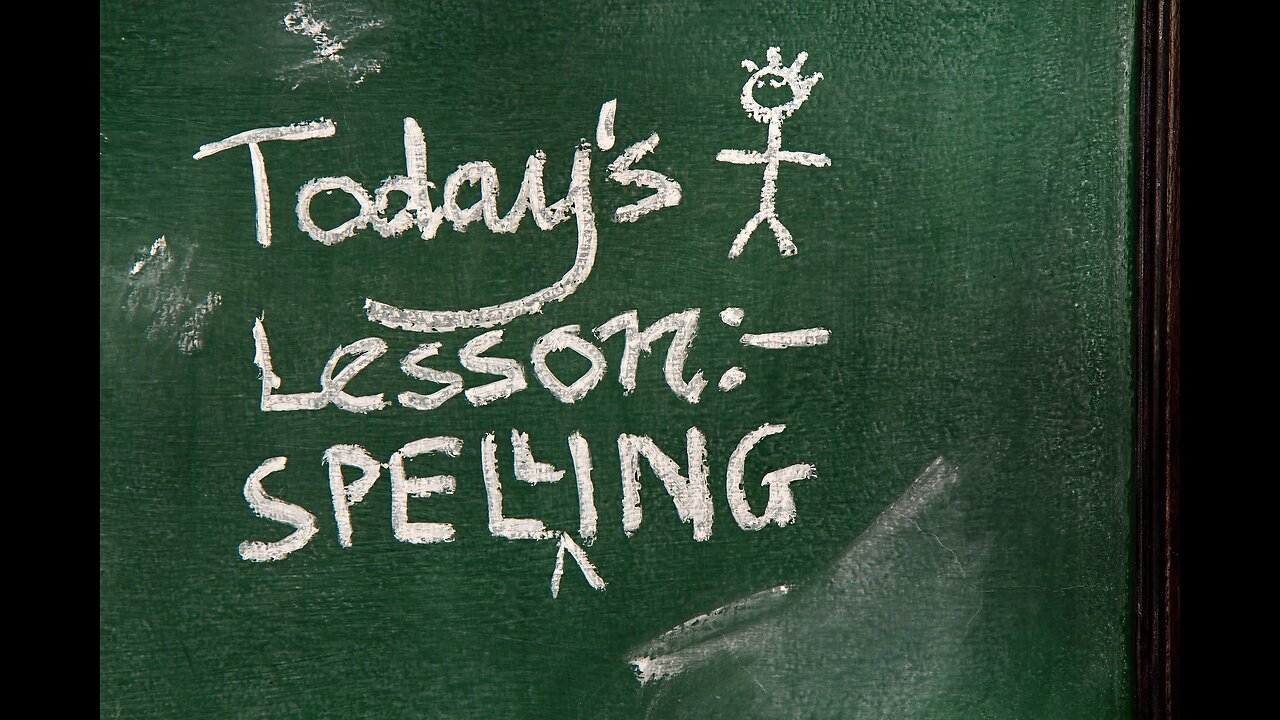 Today's
Lesson:-
SPELLING